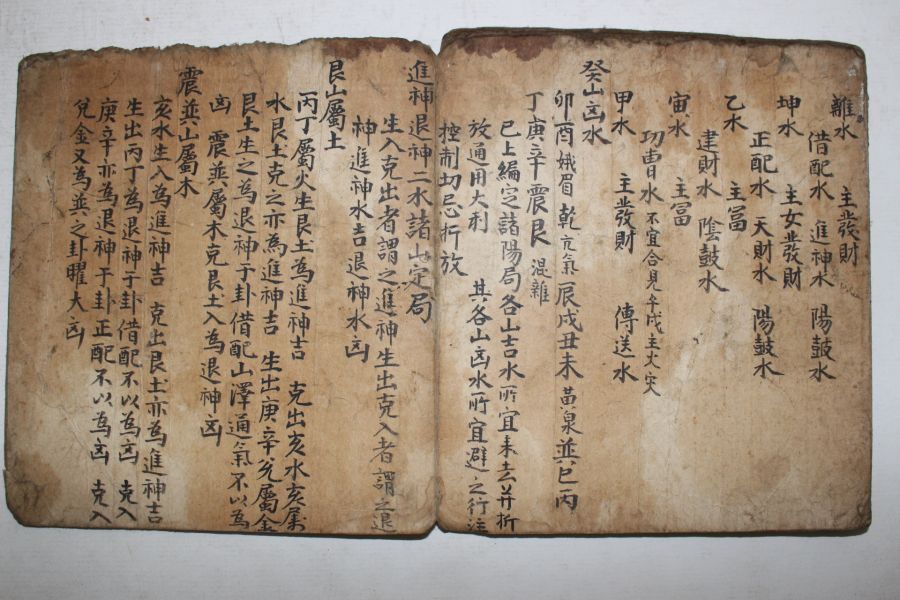 離水 主發財
借配水 進神水 陽鼓水
坤水 主女發財
正配水 天財水 陽鼓水
乙水 主富
建財水 陰鼓水
寅水 主富
功曹日水 不宜合見午戌主火灾
甲水 主發財 傳送水
癸山凶水
卯酉娥眉 乾亢氣 辰戌丑未 黃泉 巽巳丙
丁庚辛震艮 混雜
已上編定諸陽局各山吉水所宜来去并折
放通用大利 其各山凶水所宜避之行注
控制切忌折放
進神退神二水諸山定局
生入克出者謂之進神生出克入者謂之退
神進神水吉退神水凶
艮山屬土
丙丁屬火生艮土為進神吉 克出亥水亥属
水艮土克之亦為進神吉 生出庚辛兌屬金
艮土生之為退神于卦借配山澤通氣不以為
凶 震巽屬木克艮土入為退神凶
震巽山屬木
亥水生入為進神吉 克出艮土亦為進神吉
生出丙丁為退神于卦借配不以為凶 克入
庚辛亦為退神于卦正配不以為凶 克入
兌金又為巽之卦曜大凶